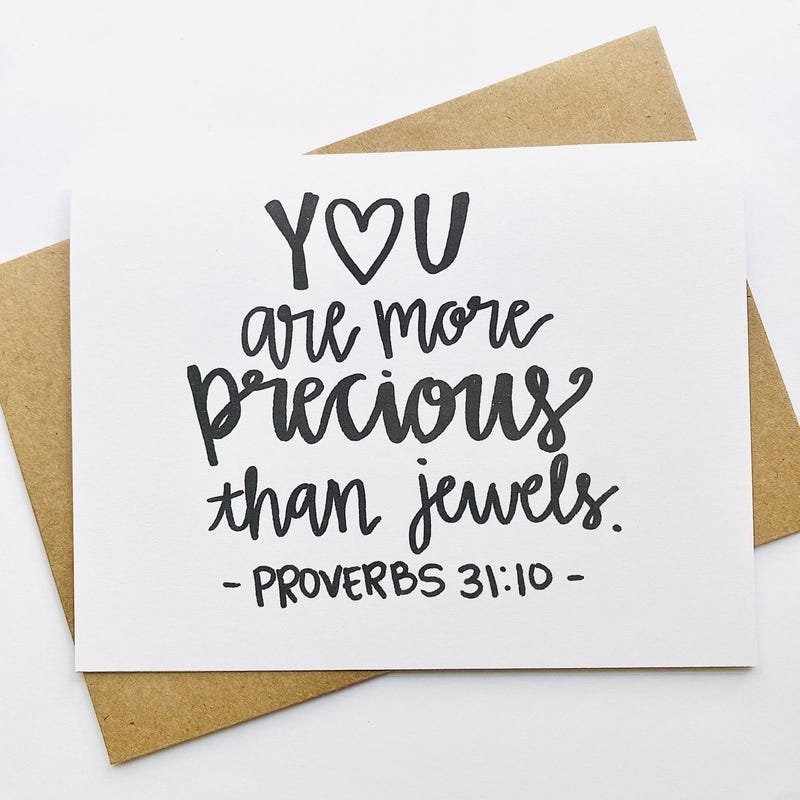 Y♡U
are more
precious
than jewels.
- PROVERBS 31:10 -